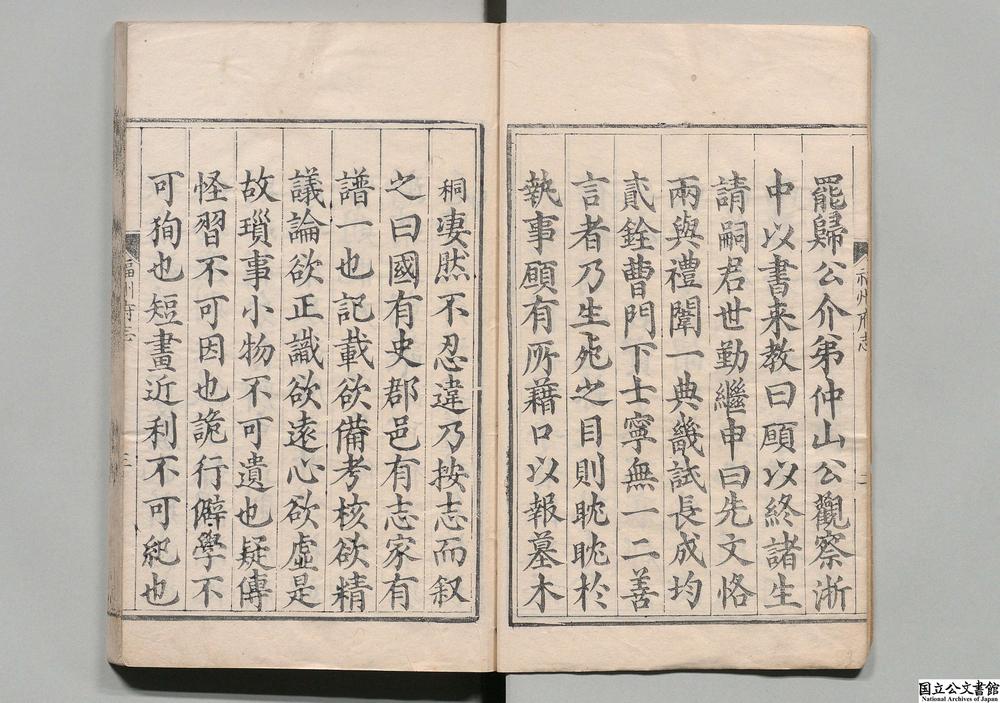 罷歸公介弟仲山公觀察淅
中以書来教曰願以終諸生
請嗣君世勤繼申曰先文恪
兩與禮闈一典畿試長成均
貳銓曹門下士寧無一二善
言者乃生死之目則眈眈於
執事願有所藉口以報墓木
福州府志
二
桐凄然不忍違乃按志而叙
之曰國有史郡邑有志家有
譜一也記載欲備考核欲精
議論欲正識欲遠心欲虛是
故瑣事小物不可遺也疑傳
怪習不可因也詭行僻學不
可狥也短畫近利不可紀也
福州府志
三
国立公文書館
National Archives of Japan